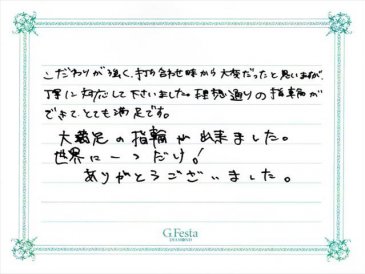 こだわりが強く、打ち合わせ時から大変だったと思いますが、
丁寧に対応して下さいました。理想通りの指輪が
できて、とても満足です。
大満足の指輪が出来ました。
世界に一つだけ!
ありがとうございました。
G.Festa
DIAMOND